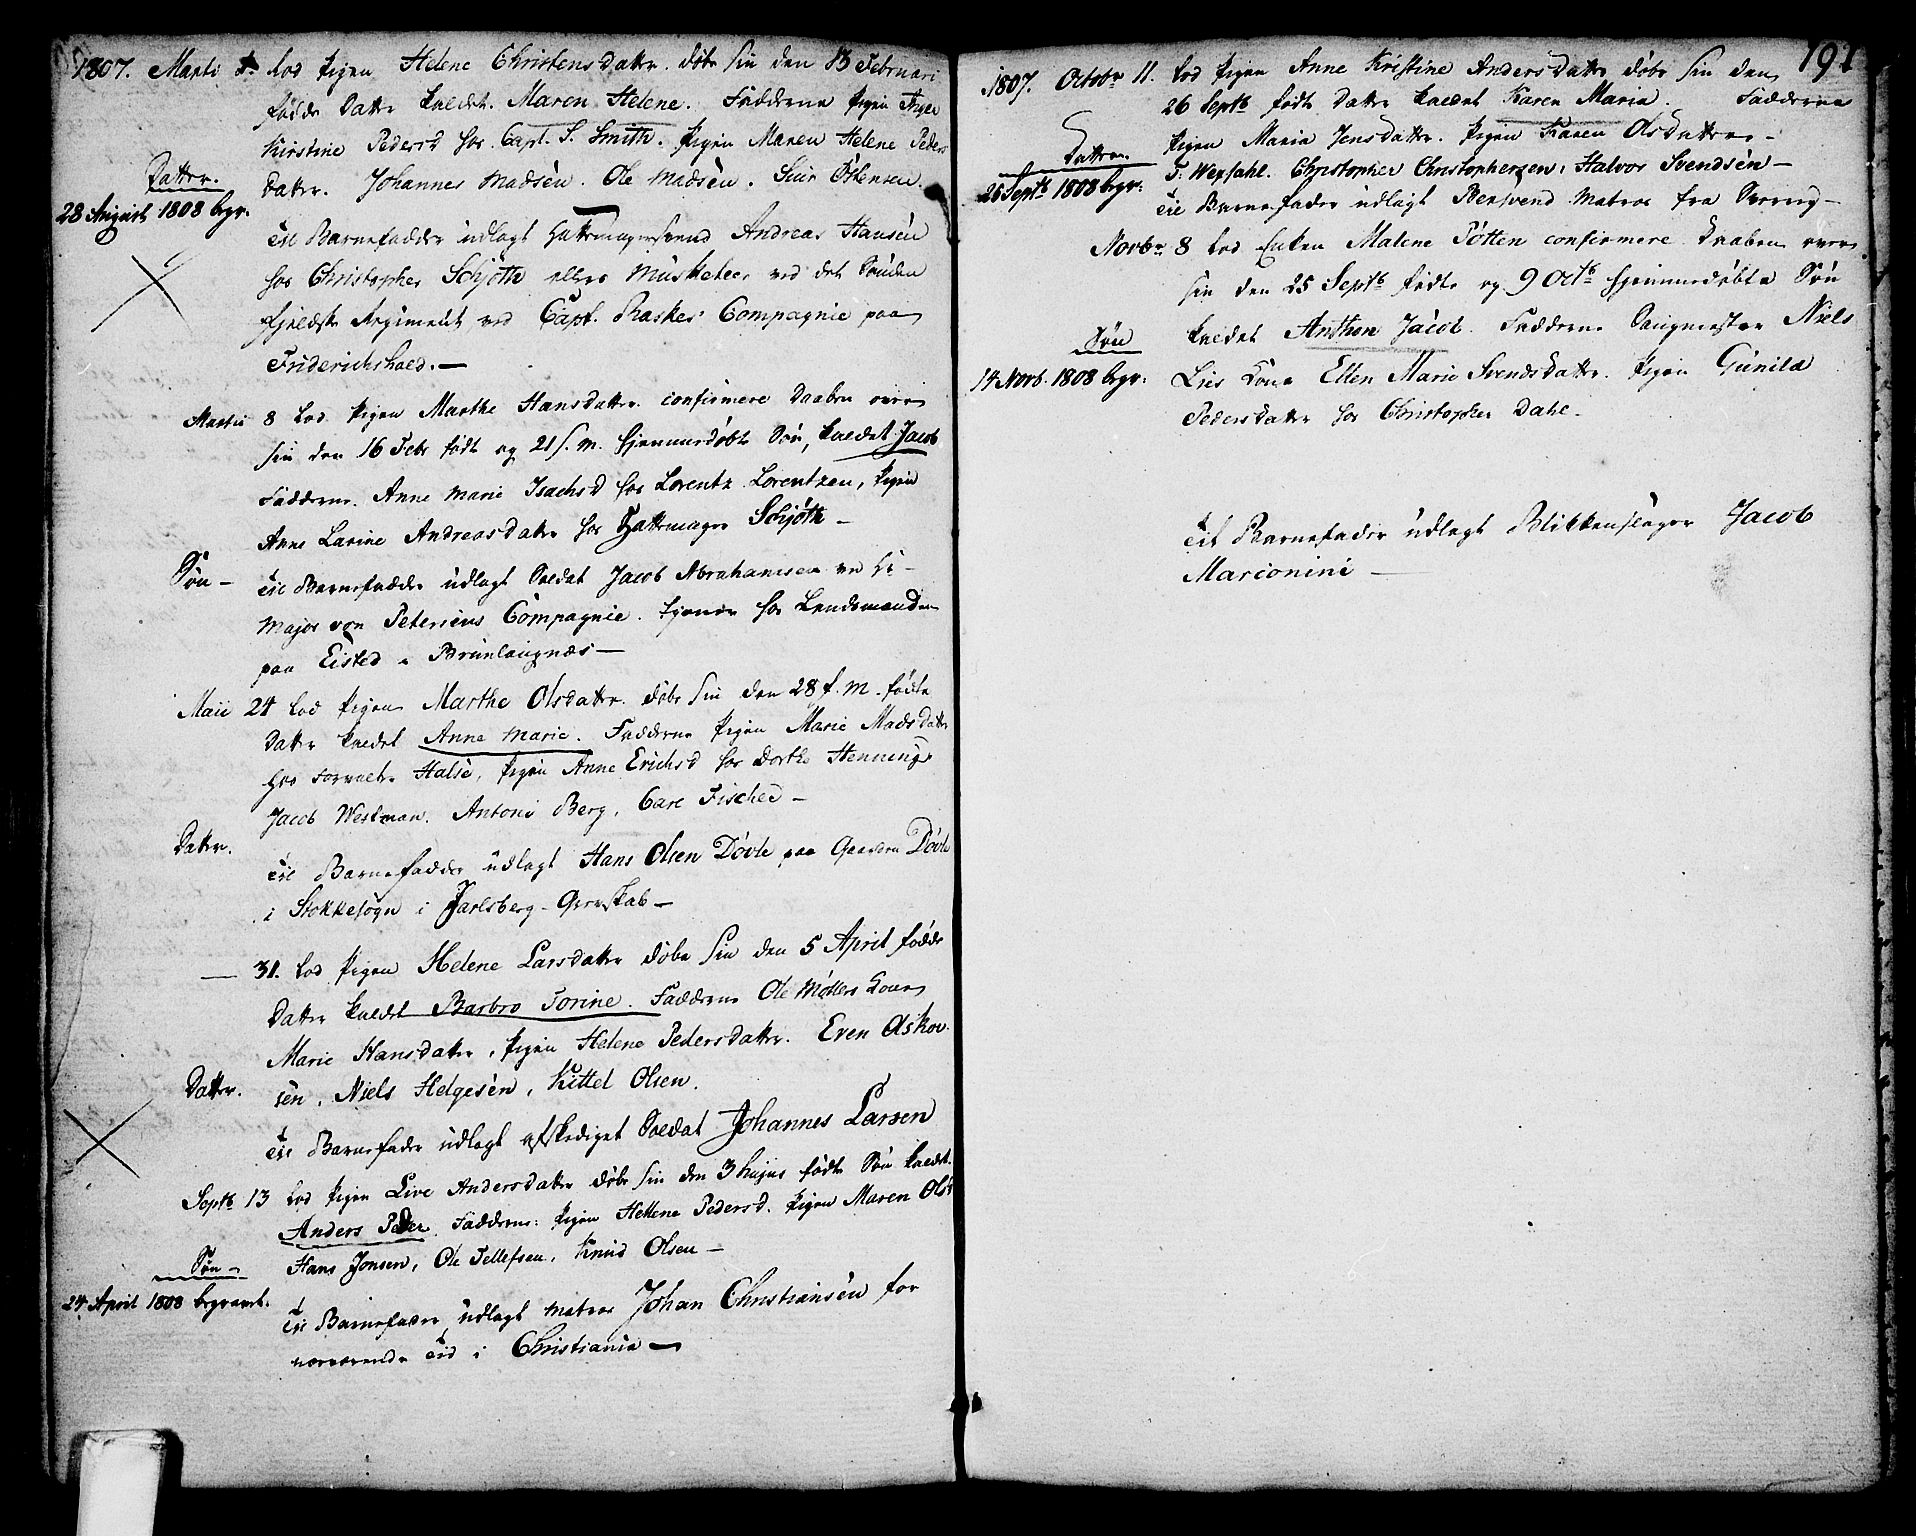 1807. Martii 1. lod Pigen Helene Christensdatter døbe sin den 13 Februari
fødde Datter kaldet Maren Helene. Fadderne Pigen
Kirstine Pedersd hos Capt. S. Smith. Pigen Maren Helene Peders
Datter.
28 August 1808 begr.
Datter. Johannes Madsen. Ole Madsen. Siur Østensen.
Til Barnefadder udlagt Hattemagersvend Andreas Hansen
hos Christopher Schjøth ellers Musketeer ved det Sønden
fjeldske Regiment ved Capt. Raskes Compagnie paa
Friderichshald. —
Martii 8 lod Pigen Marthe Hansdatter confirmere Daaben over
sin den 16 Febr født og 21 s. m. hjemmedøbte Søn, kaldet Jacob
Fadderne. Anne Marie Isachsd hos Lorentz Lorentzen, Pigen
Anne Larine Andreasdatter hos Hattemager Schjøth —
Søn — Til Barnefadder udlagt Soldat Jacob Abrahamsen ved
Major von Petersens Compagnie. tjener hos Lendsmanden
paa Eisted i Brunlaugnæs —
Maii 24 lod Pigen Marthe Olsdatter døbe sin den 28 f. M. fødte
Datter kaldet Anne Marie. Fadderne Pigen Marie Madsdatter
hos Halse, Pigen Anne Erichsd hos Dorthe Hennings
Jacob Westman. Antoni Berg, Carl Fischer —
Datter.
Til Barnefadder udlagt Hans Olsen Døvle paa Gaarden Døvle
i Stokkesogn i Jarlsberg Grevskab —
— 31. lod Pigen Helene Larsdatter døbe sin den 5 April fødde
Datter kaldet Barbro Torine. Fadderne Ole Møllers Kone
Marie Hansdatter, Pigen Helene Pedersdatter. Even Askov
Datter. sen, Niels Helgesen, Kittel Olsen.
Til Barnefader udlagt afskediget Soldat Johannes Larsen
Septb 13 lod Pigen Live Andersdatter døbe sin den 3 hujus fødte Søn kaldet
Anders Peder. Fadderne: Pigen Hellene Pedersd. Pigen Maren Olsd
Søn — Hans Jonsen, Ole Tellefsen, Knud Olsen —
24 April 1808 begravet.
Til Barnefader udlagt Matros Johan Christiansen for
nærværende Tid i Christiania —
191
1807. Octobr 11. lod Pigen Anne Kristine Andersdatter døbe sin den
26 Septb fødte Datter kaldet Karen Maria. Fadderne
Pigen Maria Jensdatter. Pigen Karen Olsdatter —
Datter.
26 Septb 1808 begr:
T. Wexsahl. Christopher Christophersen, Halvor Svendsen —
Til Barnefader udlagt Matros fra
Novbr 8 lod Enken Malene Potten confirmere Daaben over
sin den 25 Septb fødte og 9 Octb hjemmedøbte Søn
Søn kaldet Anthon Jacob. Fadderne Saugmester Niels
14 Novb. 1808 begr: Lies Kone Ellen Marie Svendsdatter. Pigen Gunild
Pedersdatter hos Christopher Dahl.
Til Barnefader udlagt Blikkenslager Jacob
Marionini —